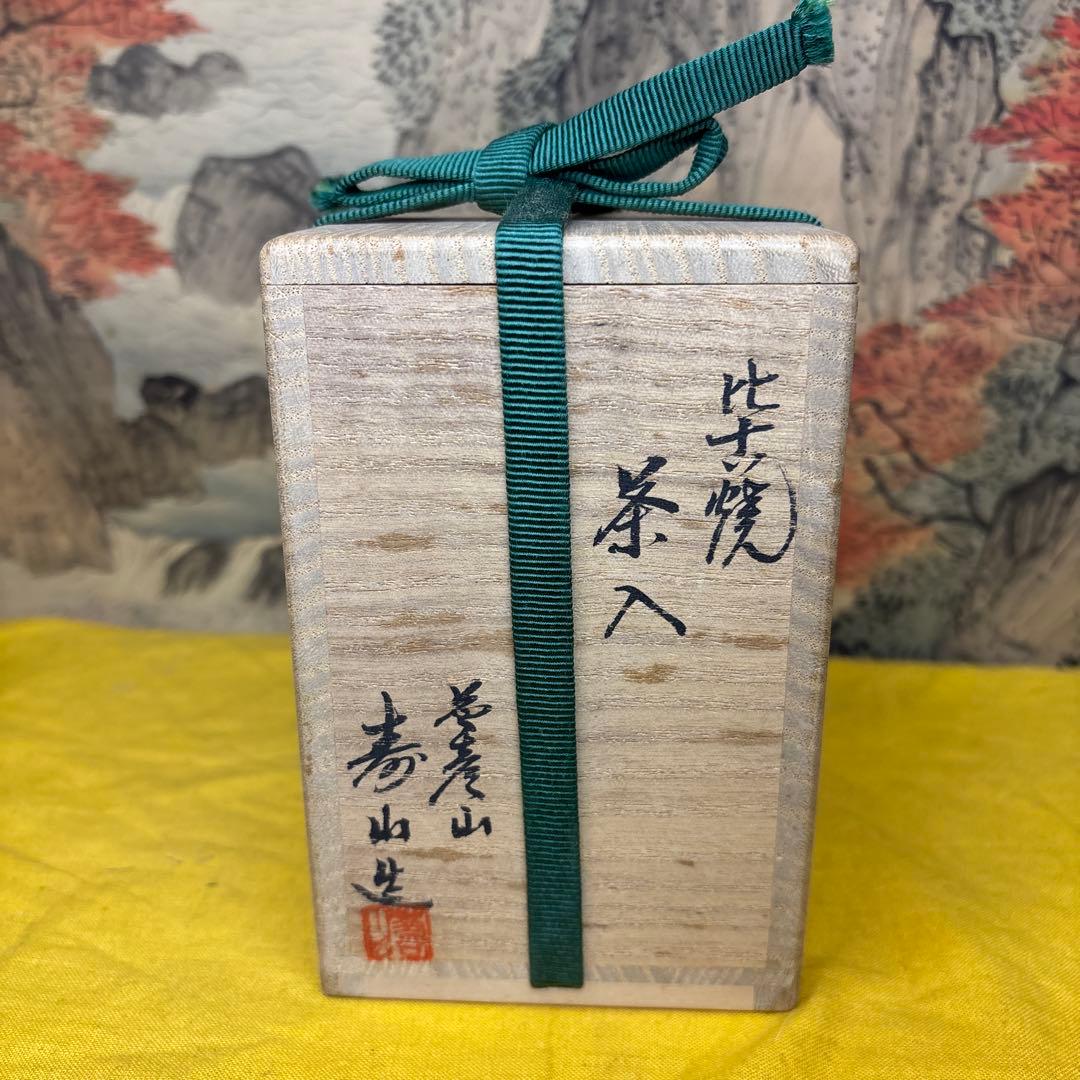 比古焼
茶入
英彦山
寿山造